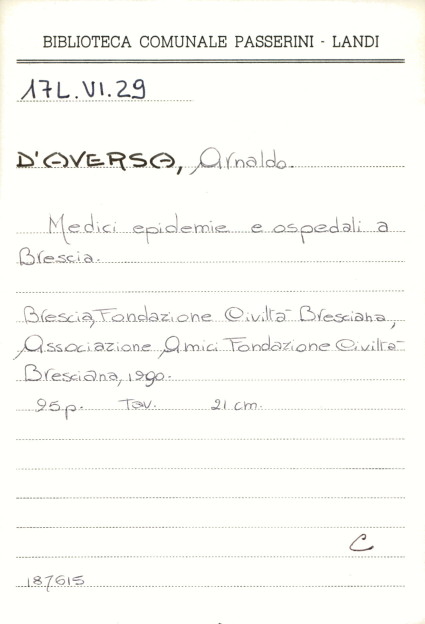 BIBLIOTECA COMUNALE PASSERINI - LANDI
17L.VI.29
D'AVERSA, Arnaldo.
Medici epidemie e ospedali a
Brescia.
Brescia, Fondazione Civiltà Bresciana,
Associazione Amici Fondazione Civiltà
Bresciana, 1990.
95p. Tav. 21 cm.
C
187615